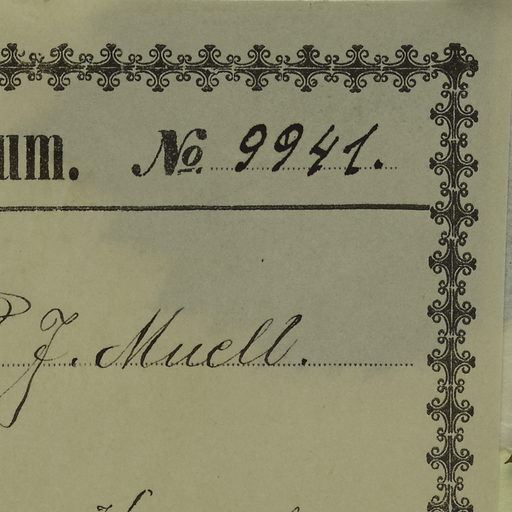 um. No 9941.
F. Muell.